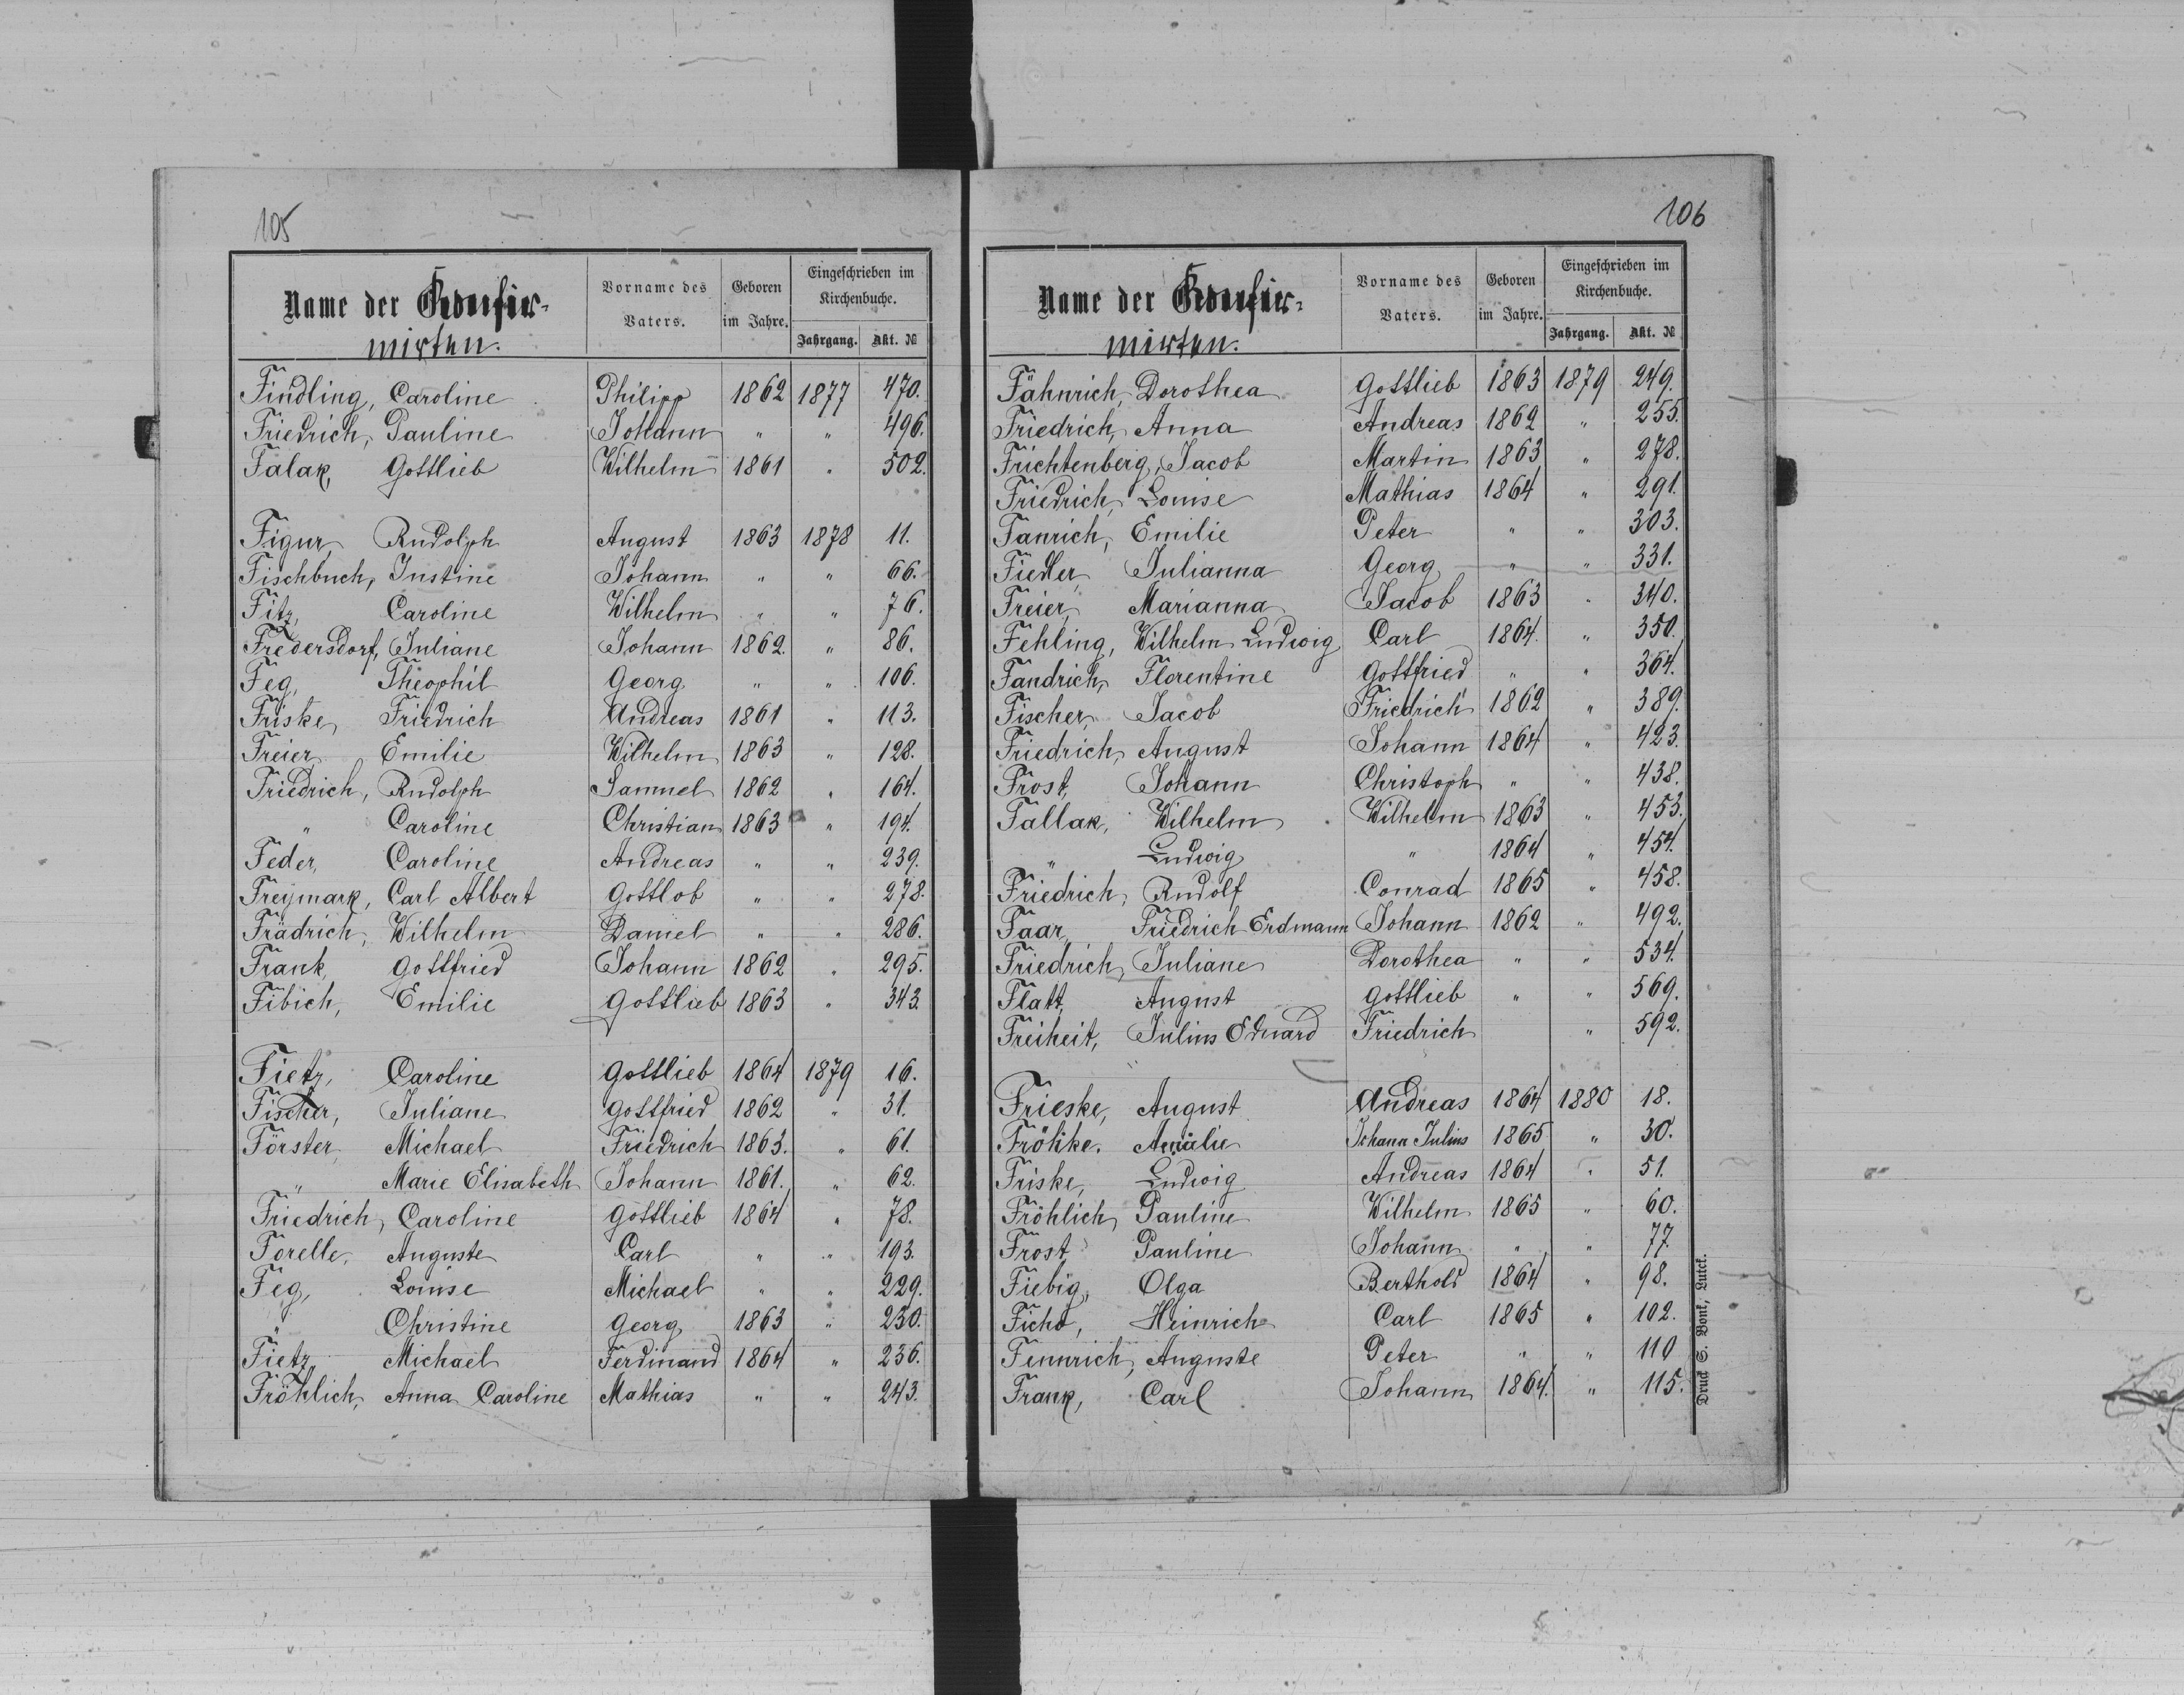 105
Name der Konfir-
mirten.
Vorname des Vaters.
Geboren im Jahre.
Eingeschrieben im Kirchenbuche.
Jahrgang. Akt. №
Findling, Caroline Philipp 1862 1877 470.
Friedrich, Pauline Johann " " 496.
Falak, Gottlieb Wilhelm 1861 " 502.
Figur, Rudolph August 1863 1878 11.
Fischbuch, Justine Johann " " 66.
Fitz, Caroline Wilhelm " " 76.
Fredersdorf, Juliane Johann 1862. " 86.
Feg, Theophil Georg " " 106.
Friske, Friedrich Andreas 1861 " 113.
Freier, Emilie Wilhelm 1863 " 128.
Friedrich, Rudolph Samuel 1862 " 164.
" Caroline Christian 1863 " 194.
Feder, Caroline Andreas " " 239.
Freymark, Carl Albert Gottlob " " 278.
Frädrich, Wilhelm Daniel " " 286.
Frank, Gottfried Johann 1862 " 295.
Fibich, Emilie Gottlieb 1863 " 343.
Fietz, Caroline Gottlieb 1864 1879 16.
Fischer, Juliane Gottfried 1862 " 31.
Förster, Michael Friedrich 1863. " 61.
" Marie Elisabeth Johann 1861. " 62.
Friedrich, Caroline Gottlieb 1864 " 78.
Forelle, Auguste Carl " " 193.
Feg, Louise Michael " " 229.
" Christine Georg 1863 " 230.
Fietz, Michael Ferdinand 1864 " 236.
Fröhlich, Anna Caroline Mathias " " 243.
106
Name der Konfir-
mirten.
Vorname des Vaters.
Geboren im Jahre.
Eingeschrieben im Kirchenbuche.
Jahrgang. Akt. №
Fähnrich, Dorothea Gottlieb 1863 1879 249.
Friedrich, Anna Andreas 1862 " 255.
Frichtenberg, Jacob Martin 1863 " 278.
Friedrich, Louise Mathias 1864 " 291.
Fanrich, Emilie Peter " " 303.
Fiedler, Julianna Georg " " 331.
Freier, Marianna Jacob 1863 " 340.
Fehling, Wilhelm Ludwig Carl 1864. " 350.
Fandrich, Florentine Gottfried " " 364.
Fischer, Jacob Friedrich 1862 " 389.
Friedrich, August Johann 1864 " 423.
Frost, Johann Christoph " " 438.
Fallak, Wilhelm Wilhelm 1863 " 453.
" Ludwig " 1864 " 454.
Friedrich, Rudolf Conrad 1865 " 458.
Faar, Friedrich Erdmann Johann 1862 " 492.
Friedrich, Juliane Dorothea " " 534.
Flatt, August Gottlieb " " 569.
Freiheit, Julius Eduard Friedrich " 592.
Frieske, August Andreas 1864 1880 18.
Fröhke. Amalie Johann Julius 1865 " 30.
Friske, Ludwig Andreas 1864 " 51.
Fröhlich, Pauline Wilhelm 1865 " 60.
Frost, Pauline Johann " " 77.
Fiebig, Olga Berthold 1864 " 98.
Ficht, Heinrich Carl 1865 " 102.
Fennrich, Auguste Peter " " 110
Frank, Carl Johann 1864. " 115.
Druck S. Bonk, Lutck.